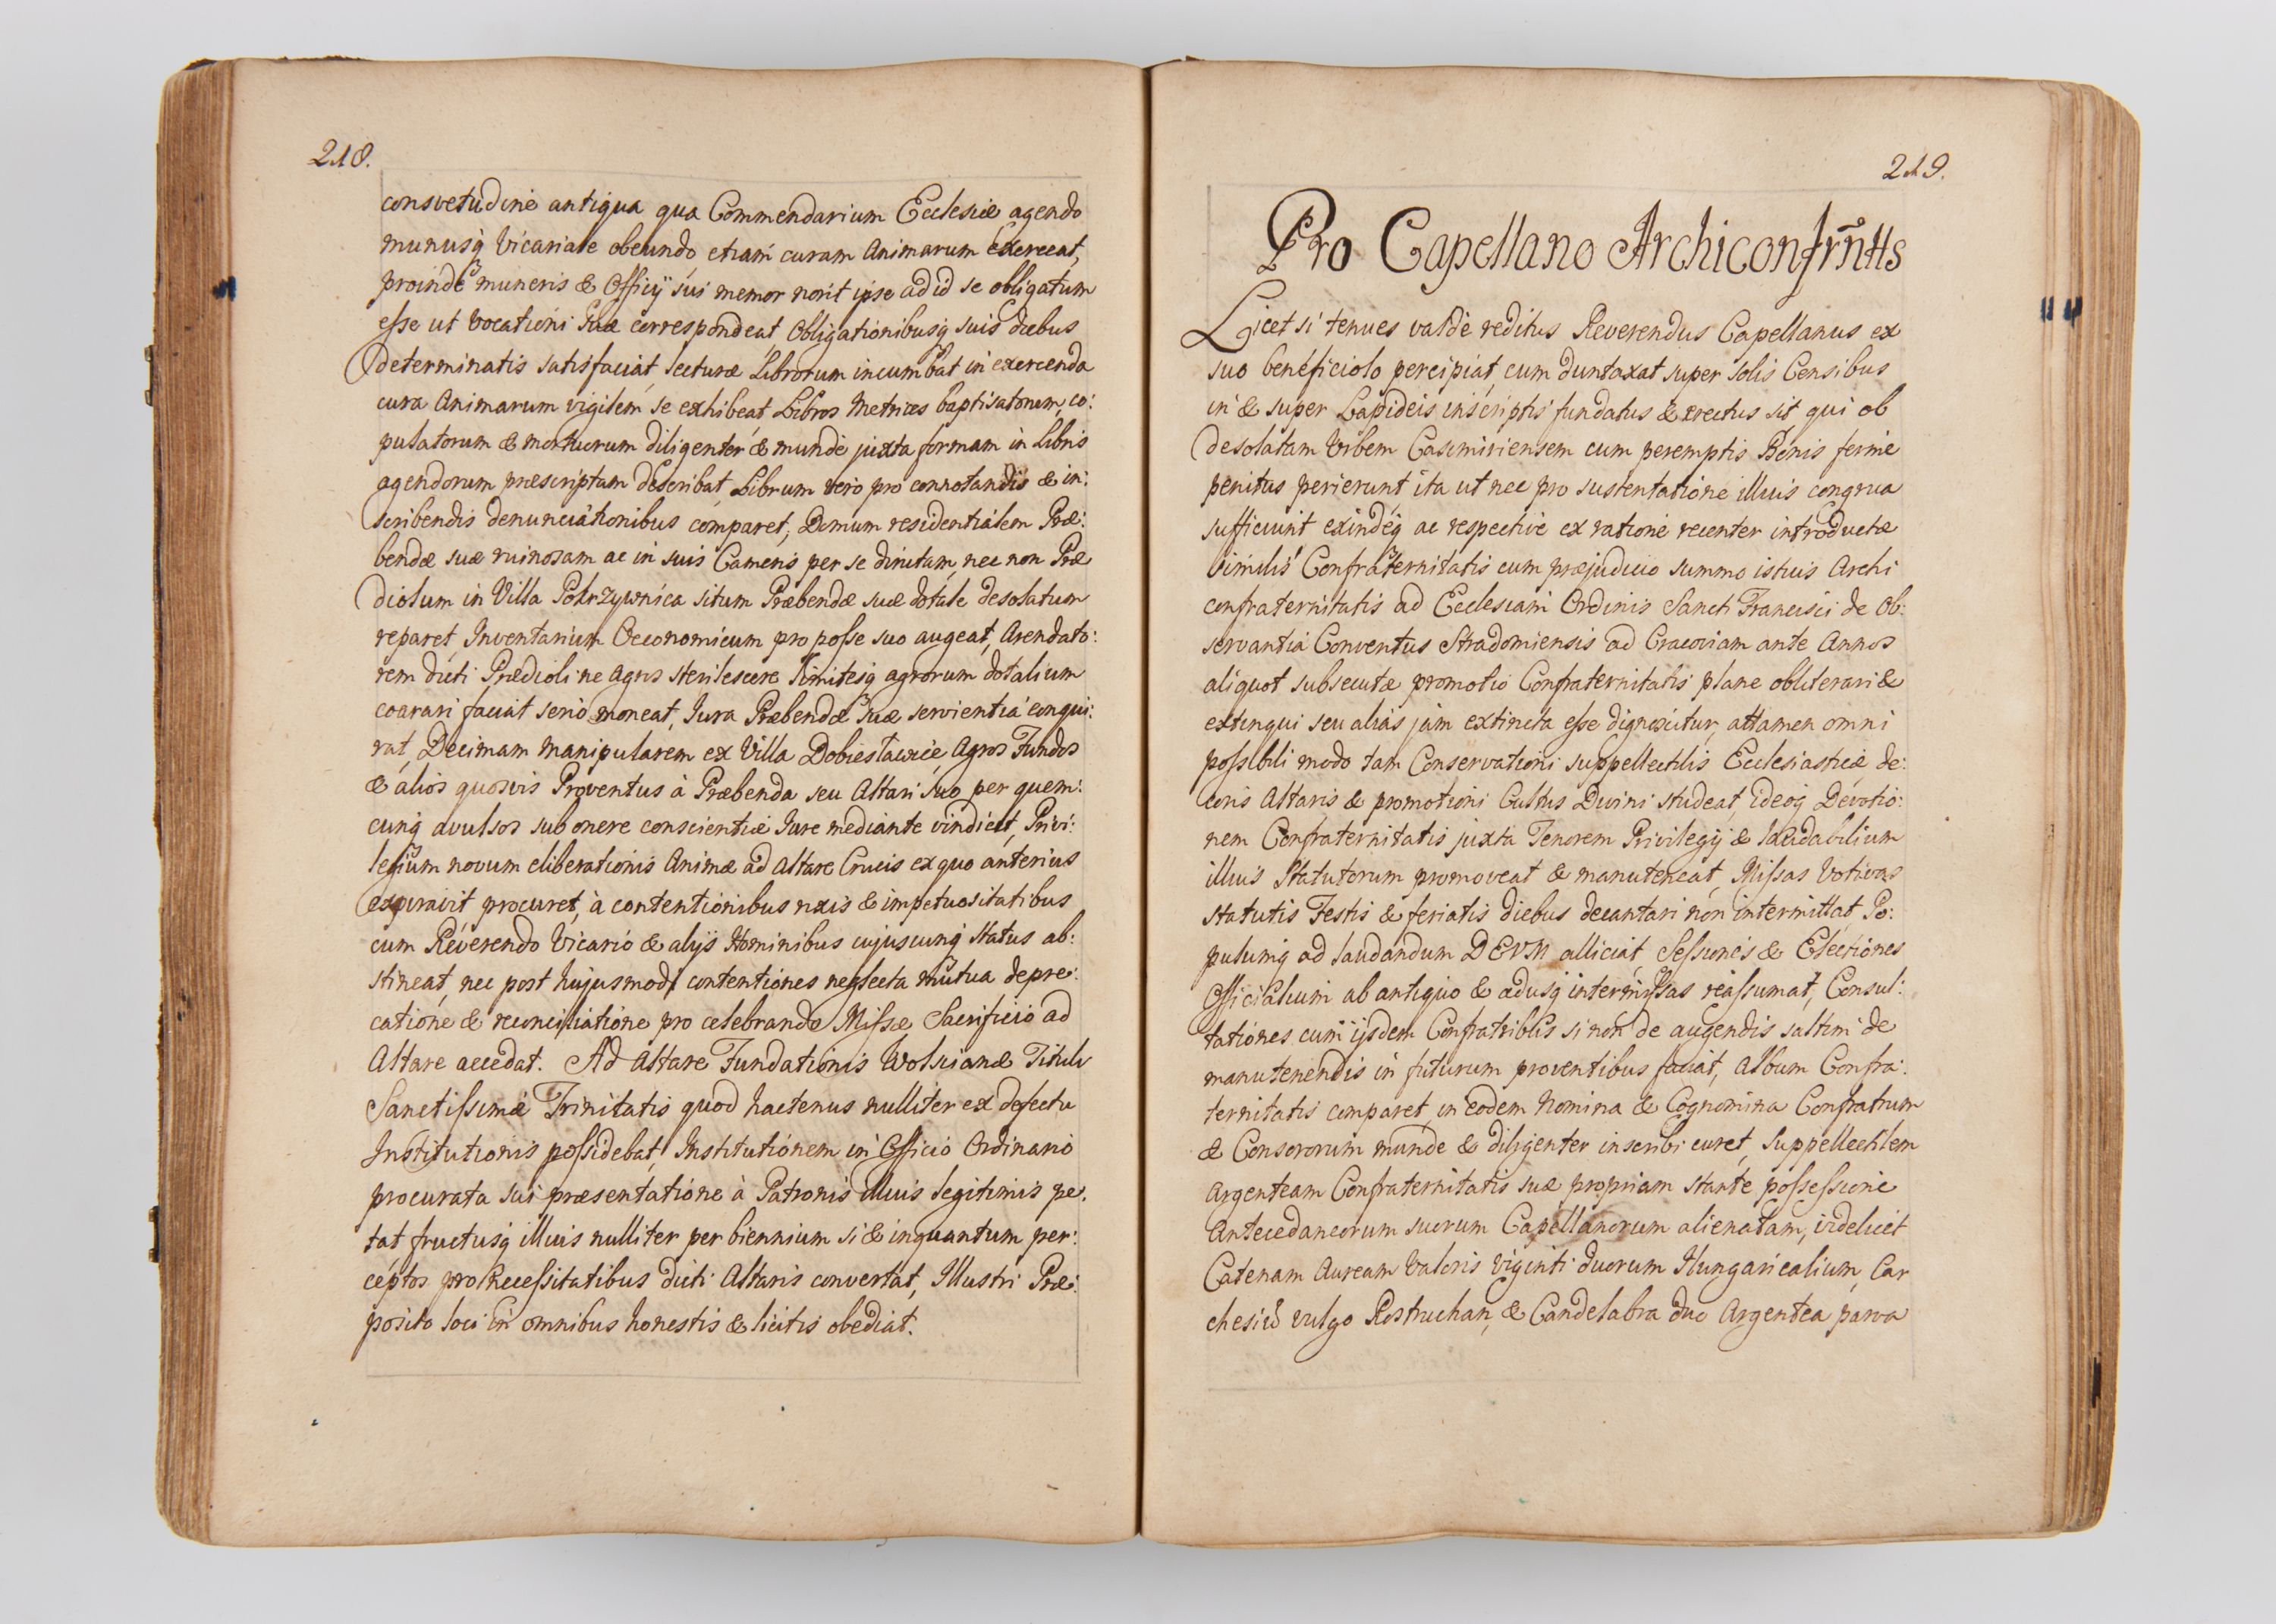 218.
consvetudine antiqua qua Commendarium Ecclesiæ agendo
munusq́ Vicariale obeundo, etiam curam Animarum exerceat,
proinde muneris & Officij sui memor norit ipse ad id se obligatum
eſse ut Vocationi suæ correspondeat, Obligationibusq́ suis diebus
determinatis satisfaciat, lecturæ Librorum incumbat in exercenda
cura Animarum vigilem se exhibeat, Libros Metrices baptisatorum, co:
pulatorum & mortuorum diligenter & munde juxta formam in Libris
agendorum præscriptam describat, Librum vero pro connotandis & in:
scribendis denunciationibus comparet, Domum residentialem Præ:
bendæ suæ ruinosam ac in suis Cameris per se dirutam, nec non Præ
diolum in Villa Pokrzywnica situm Præbendæ suæ dotale desolatum
reparet, Inventarium Oeconomicum pro poſse suo augeat, Arendato:
rem dicti Prædioli ne Agros sterilescere limitesq́ agrorum dotalium
coarari faciat serio moneat, Jura Præbendæ suæ servientia conqui:
rat, Decimam manipularem ex Villa Dobiesławice, Agros Fundos
& alios quosvis Proventus à Præbenda seu Altari suo per quem:
cunq́ avulsos sub onere conscientiæ Jure mediante vindicet, Privi:
legium novum eliberationis Animæ ad Altare Crucis ex quo anterius
expiravit procuret, à contentionibus rixis & impetuositatibus
cum Reverendo Vicario & alijs Hominibus cujuscunq́ status ab:
stineat, nec post hujusmodi contentiones neglecta mutua depre:
catione & reconciliatione pro celebrando Miſsæ Sacrificio ad
Altare accedat. Ad Altare Fundationis Wolsciana Tituli
Sanctiſsimæ Trinitatis quod hactenus nulliter ex defectu
Institutionis poſsidebat, Institutionem in Officio Ordinario
procurata sui præsentatione à Patronis illius legitimis pe.
tat fructusq́ illius nulliter per biennium si & inquantum per:
ceptos pro Neceſsitatibus dicti Altaris convertat, Illustri Præ:
posito loci in omnibus honestis & licitis obediat.
219.
Pro Capellano Archiconfrñtts
Licet si tenues valde reditus Reverendus Capellanus ex
suo beneficiolo percipiat, cum duntaxat super solis Censibus
in & super Lapideis inscriptis fundatus & erectus sit qui ob
desolatam Urbem Casimiriensem cum peremptis Bonis ferme
penitus perierunt ita ut nec pro sustentatione illius congrua
sufficiunt exindeq́ ac respective ex ratione recenter introductæ
similis Confraternitatis cum præjudicio summo istius Archi
confraternitatis ad Ecclesiam Ordinis Sancti Francisci de Ob:
servantia Conventus Stradomiensis ad Cracoviam ante Annos
aliquot subsecutæ promotio Confraternitatis plane obliterari &
extingui seu alias jam extincta eſse dignoscitur, attamen omni
poſsibili modo tam Conservationi suppellectilis Ecclesiasticæ, de:
coris Altaris & promotioni Cultus Divini studeat, ideoq́ Devotio:
nem Confraternitatis juxta Tenorem Privilegij & laudabilium
illius Statutorum promoveat & manuteneat, Miſsas Votivas
statutis Festis & feriatis diebus decantari non intermittat, Po:
pulumq́ ad laudandum DEUM alliciat, Seſsiones & Electiones
Officialium ab antiquo & adusq́ intermiſsas reaſsumat, Consul:
tationes cum ijsdem Confratribus si non de augendis saltem de
manutenendis in futurum proventibus faciat, Album Confra:
ternitatis comparet, in eodem Nomina & Cognomina Confratrum
& Consororum munde & diligenter inscribi curet, Suppellectilem
Argenteam Confraternitatis suæ propriam stante poſseſsione
Antecedaneorum suorum Capellanorum alienatam, videlicet
Catenam Auream Valoris viginti duorum Hungaricalium, Car
chesiũ vulgo Rostruchan, & Candelabra duo Argentea parva